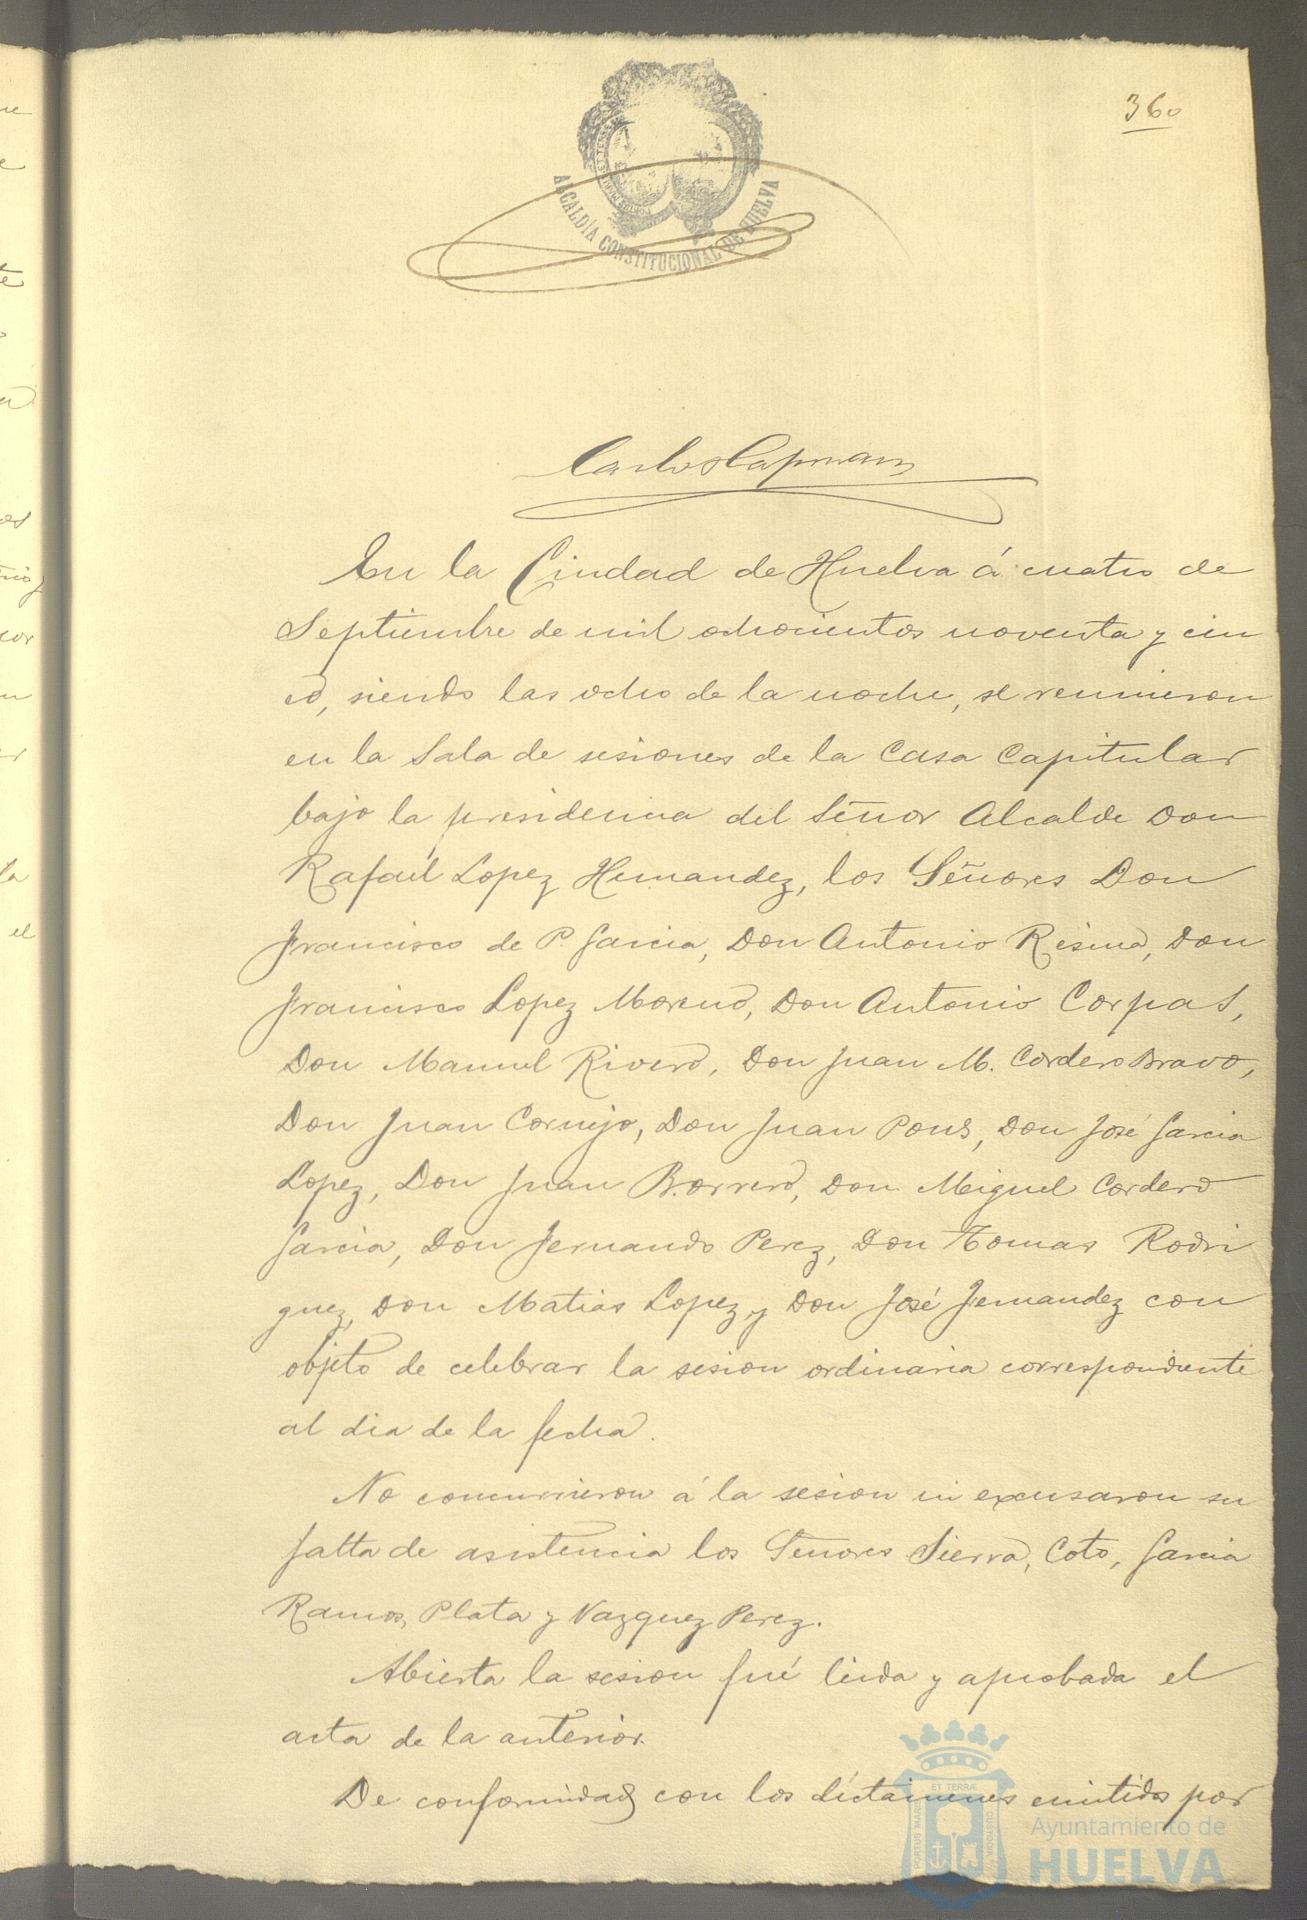 360
ALCALDÍA CONSTITUCIONAL DE HUELVA
Carlos Capmam
En la Ciudad de Huelva á cuatro de
Septiembre de mil ochocientos noventa y cin
co, siendo las ocho de la noche, se reunieron
en la Sala de sesiones de la Casa Capitular
bajo la presidencia del Señor Alcalde Don
Rafael Lopez Hernandez, los Señores Don
Francisco de P. Garcia, Don Antonio Resina, Don
Francisco Lopez Moreno, Don Antonio Corpas,
Don Manuel Rivero, Don Juan M. Cordero Bravo,
Don Juan Cornejo, Don Juan Pons, Don José Garcia
Lopez, Don Juan Borrero, Don Miguel Cordero
Garcia, Don Fernando Perez, Don Tomas Rodri
guez, Don Matias Lopez, y Don José Fernandez con
objeto de celebrar la sesion ordinaria correspondiente
al dia de la fecha.
No concurrieron á la sesion ni excusaron su
falta de asistencia los Señores Sierra, Coto, Garcia
Ramos, Plata y Vazquez Perez.
Abierta la sesion fué leida y aprobada el
acta de la anterior.
De conformidad con los dictamenes emitidos por
PORTUS MARIS ET TERRÆ CUSTODIA
Ayuntamiento de
HUELVA